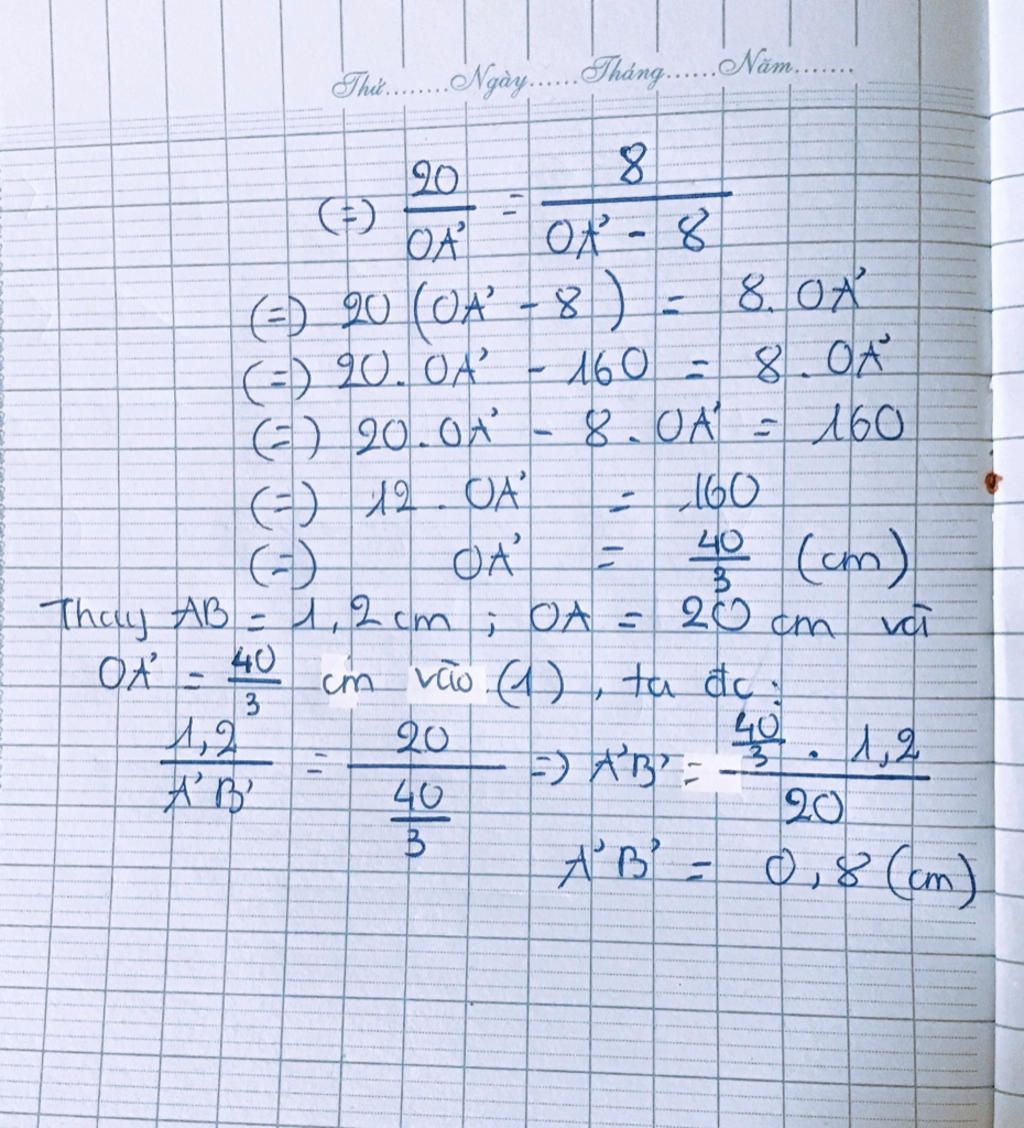 Thứ........Ngày......Tháng......Năm.......
(=) 20/OA' = 8/(OA' - 8)
(=) 20 (OA' - 8) = 8. OA'
(=) 20. OA' - 160 = 8. OA'
(=) 20. OA' - 8. OA' = 160
(=) 12. OA' = 160
(=) OA' = 40/3 (cm)
Thay AB = 1,2 cm ; OA = 20 cm và
OA' = 40/3 cm vào (1), ta đc:
1,2/A'B' = 20/(40/3) => A'B' = (40/3 . 1,2)/20
A'B' = 0,8 (cm)